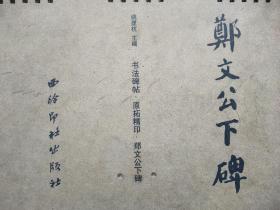 鄭文公下碑
书法碑帖·原拓精印·郑文公下碑
主编
西泠印社出版社